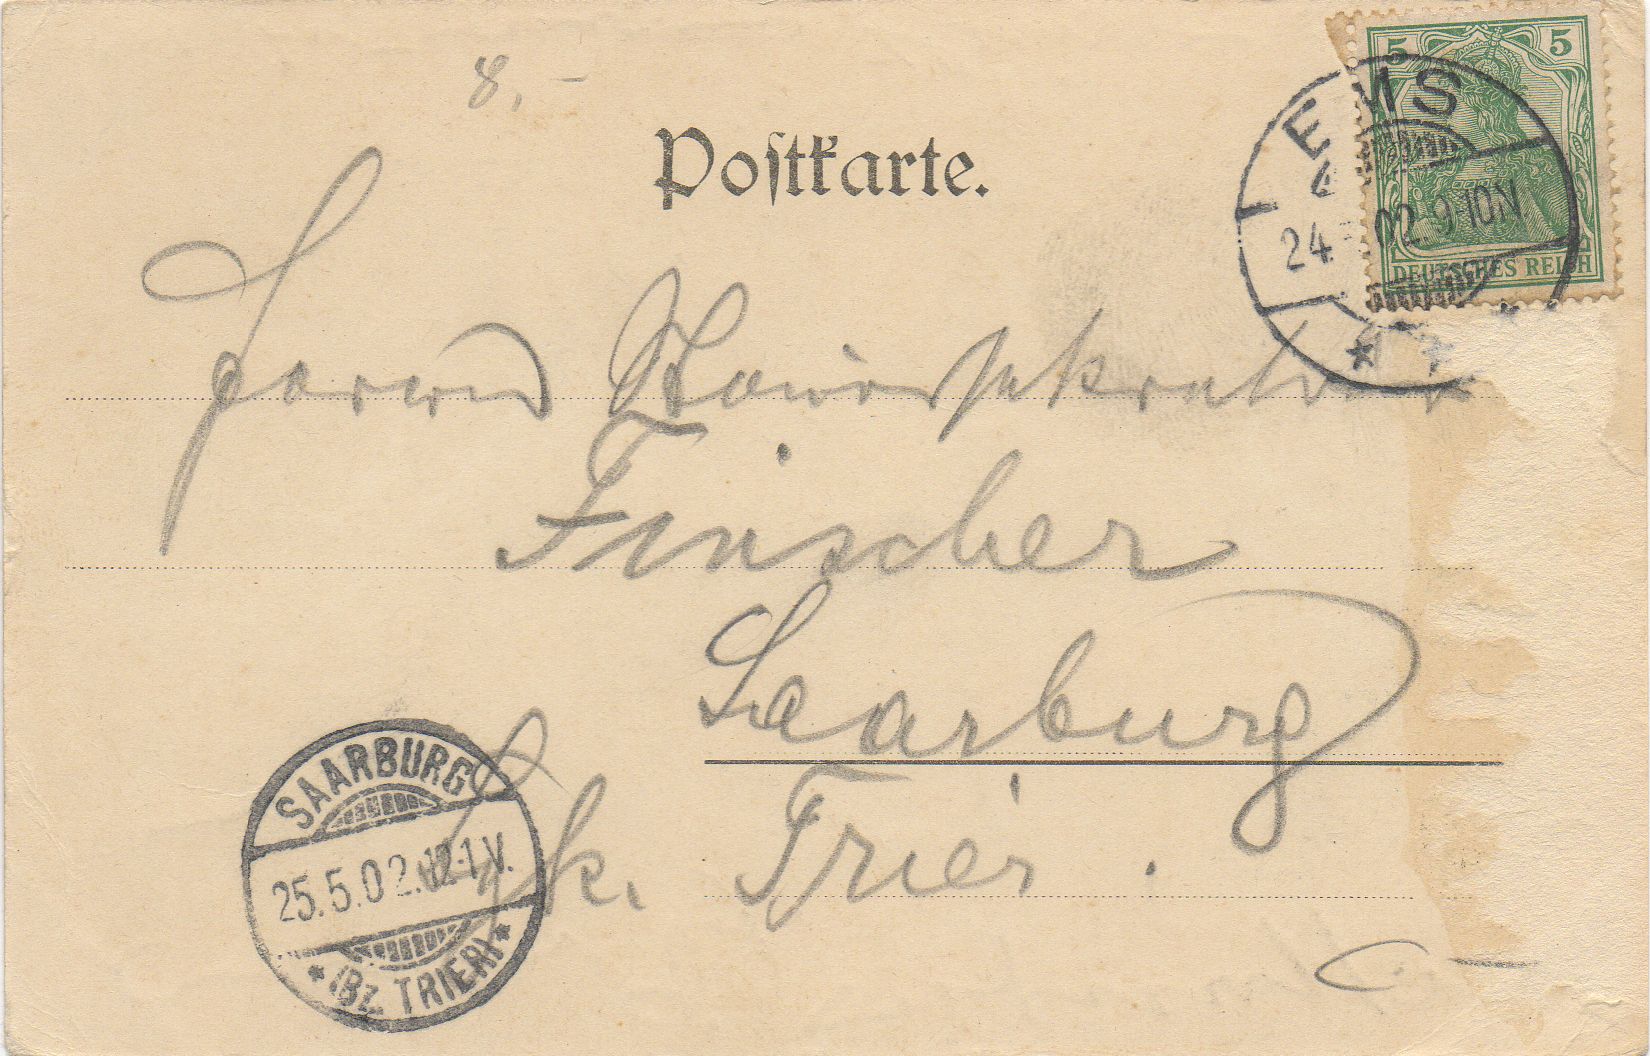 8,-
Postkarte.
5 5
DEUTSCHES REICH
EMS
24 02. 9-10N
Herrn
Finscher
Saarburg
Bzk. Trier.
SAARBURG
25.5.02.12-1V.
(BZ. TRIER)